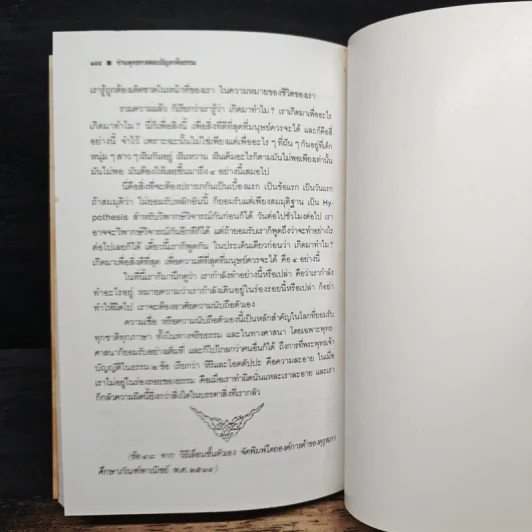 ๑๔๔ ท่านพุทธทาสตอบปัญหาจริยธรรม
เรารู้ถูกต้องเด็ดขาดในหน้าที่ของเรา ในความหมายของชีวิตของเรา
รวมความแล้ว ก็เรียกว่าเรารู้ว่า เกิดมาทำไม? เราเกิดมาเพื่ออะไร
เกิดมาทำไม? นี่ก็เพื่อสิ่งนี้ เพื่อสิ่งที่ดีที่สุดที่มนุษย์ควรจะได้ และก็คือสี่
อย่างนี้ จำไว้ เพราะฉะนั้นไม่ใช่เพียงแต่เพื่ออะไร ๆ ที่ฝัน ๆ กันอยู่ที่เด็ก
หนุ่ม ๆ สาว ๆ ฝันกันอยู่ ฝันหวาน ฝันเค็มอะไรก็ตามมันไม่พอเพียงเท่านั้น
มันไม่พอ มันต้องให้เลยขึ้นมาถึง ๔ อย่างนี้เสมอไป
นี่คือสิ่งที่จะต้องปรารภกันเป็นเบื้องแรก เป็นข้อแรก เป็นวันแรก
ถ้าสมมุติว่า ไม่ยอมรับหลักอันนี้ ก็ยอมรับแต่เพียงสมมุติฐาน เป็น Hy-
pothesis สำหรับวิพากษ์วิจารณ์กันก่อนก็ได้ วันต่อไปชั่วโมงต่อไป เรา
อาจจะวิพากษ์วิจารณ์กันอีกทีก็ได้ แต่ถ้ายอมรับเราก็พูดถึงว่าจะทำอย่างไร
ต่อไปเลยก็ได้ เดี๋ยวนี้เราก็พูดกัน ในประเด็นเดียวก่อนว่า เกิดมาทำไม?
เกิดมาเพื่อสิ่งที่ดีที่สุด เพื่อความดีที่สุดที่มนุษย์ควรจะได้ คือ ๔ อย่างนี้
ในที่นี้เราก็มานึกดูว่า เรากำลังทำอย่างนี้หรือเปล่า คือว่าเรากำลัง
ทำอะไรอยู่ หมายความว่าเรากำลังเดินอยู่ในร่องรอยนี้หรือเปล่า ก็อย่า
ทำให้ผิดไป เราจะต้องอาศัยความนับถือตัวเอง
ความเชื่อ หรือความนับถือตัวเองนี้เป็นหลักสำคัญในโลกที่ยอมรับ
ทุกชาติทุกภาษา ทั้งในทางจริยธรรม และในทางศาสนา โดยเฉพาะพุทธ-
ศาสนาก็ยอมรับอย่างเต็มที่ และก็ไปไกลกว่าคนอื่นก็ได้ ถึงการที่พระพุทธเจ้า
บัญญัติในธรรม ๒ ข้อ เรียกว่า หิริและโอตตัปปะ คือความละอาย ในเมื่อ
เราไม่อยู่ในร่องรอยของธรรม คือเมื่อเราทำผิดนั่นแหละเราละอาย และเรา
ก็กลัวความผิดนี้ยิ่งกว่าสิ่งใดในบรรดาสิ่งที่เรากลัว
จาก วิธีเลื่อนชั้นตัวเอง จัดพิมพ์โดยองค์การค้าของคุรุสภา
ศึกษาภัณฑ์พาณิชย์ พ.ศ.